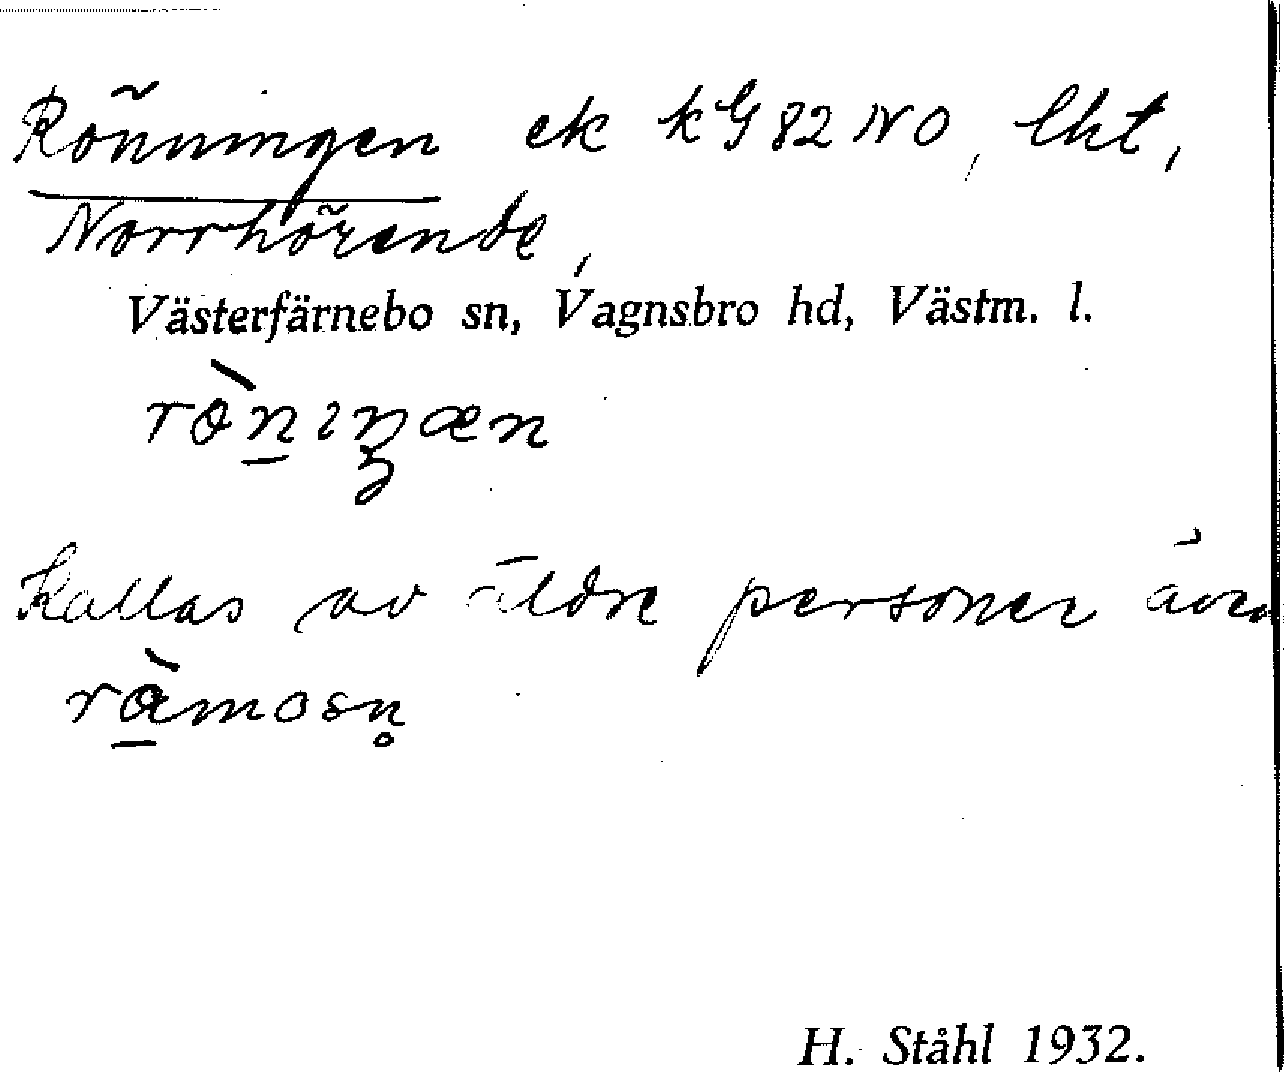 Rönningen ek kG82NO, lht,
Norrhörende,
Västerfärnebo sn, Vagnsbro hd, Västm. l.
Kallas av äldre personer även
H. Ståhl 1932.